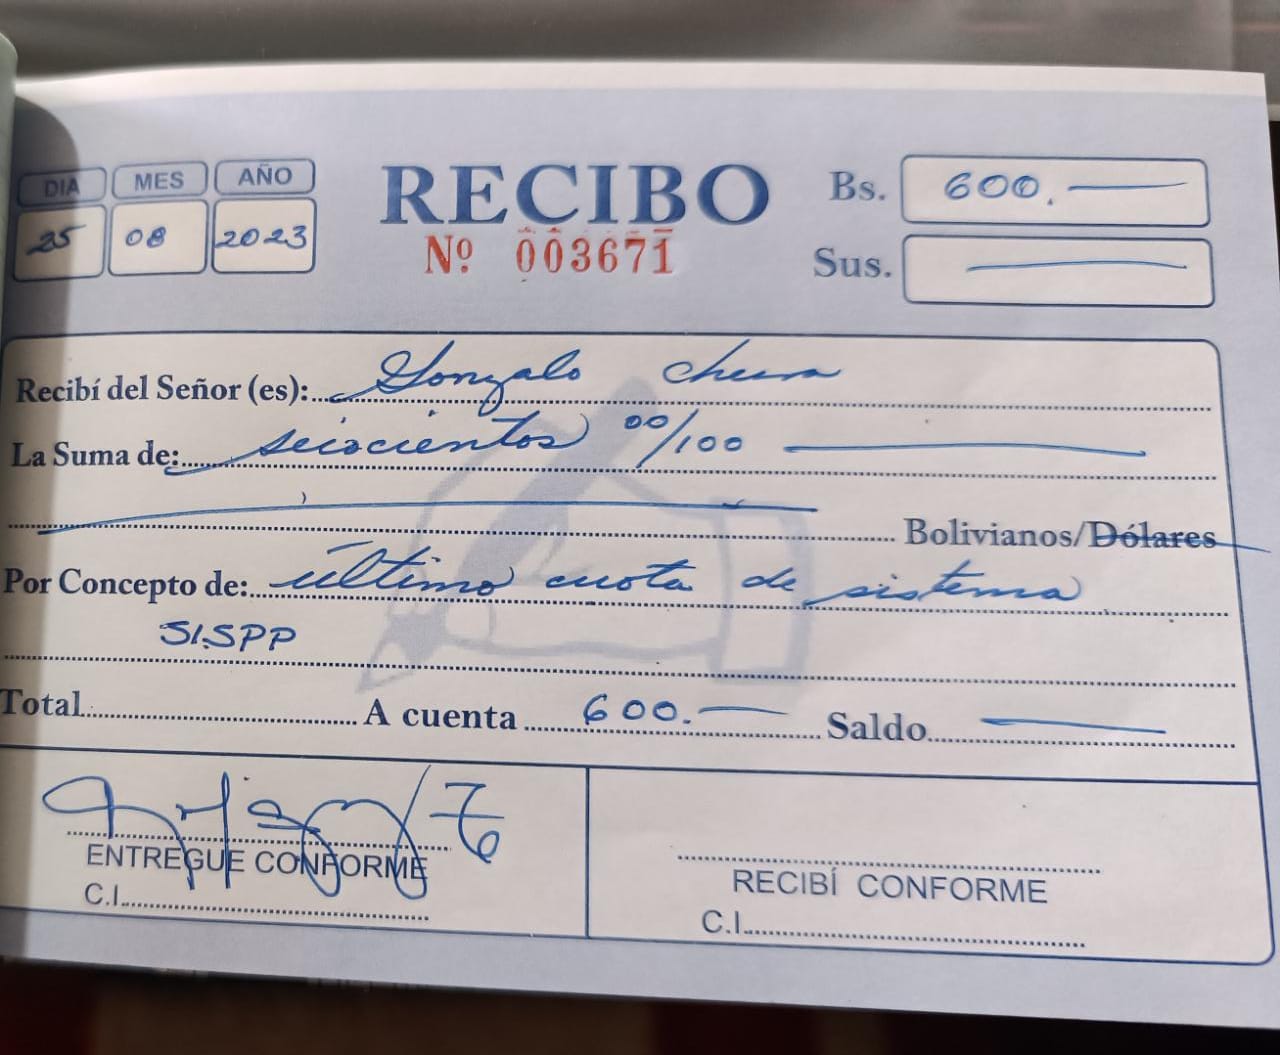 DIA MES AÑO
25 08 2023
RECIBO
Nº 003671
Bs. 600.
Sus.
Recibí del Señor (es): Gonzalo
La Suma de: seiscientos 00/100
Bolivianos/Dólares
Por Concepto de: última cuota de sistema
SISPP
Total A cuenta 600. Saldo
ENTREGUE CONFORME
C.I.
RECIBÍ CONFORME
C.I.